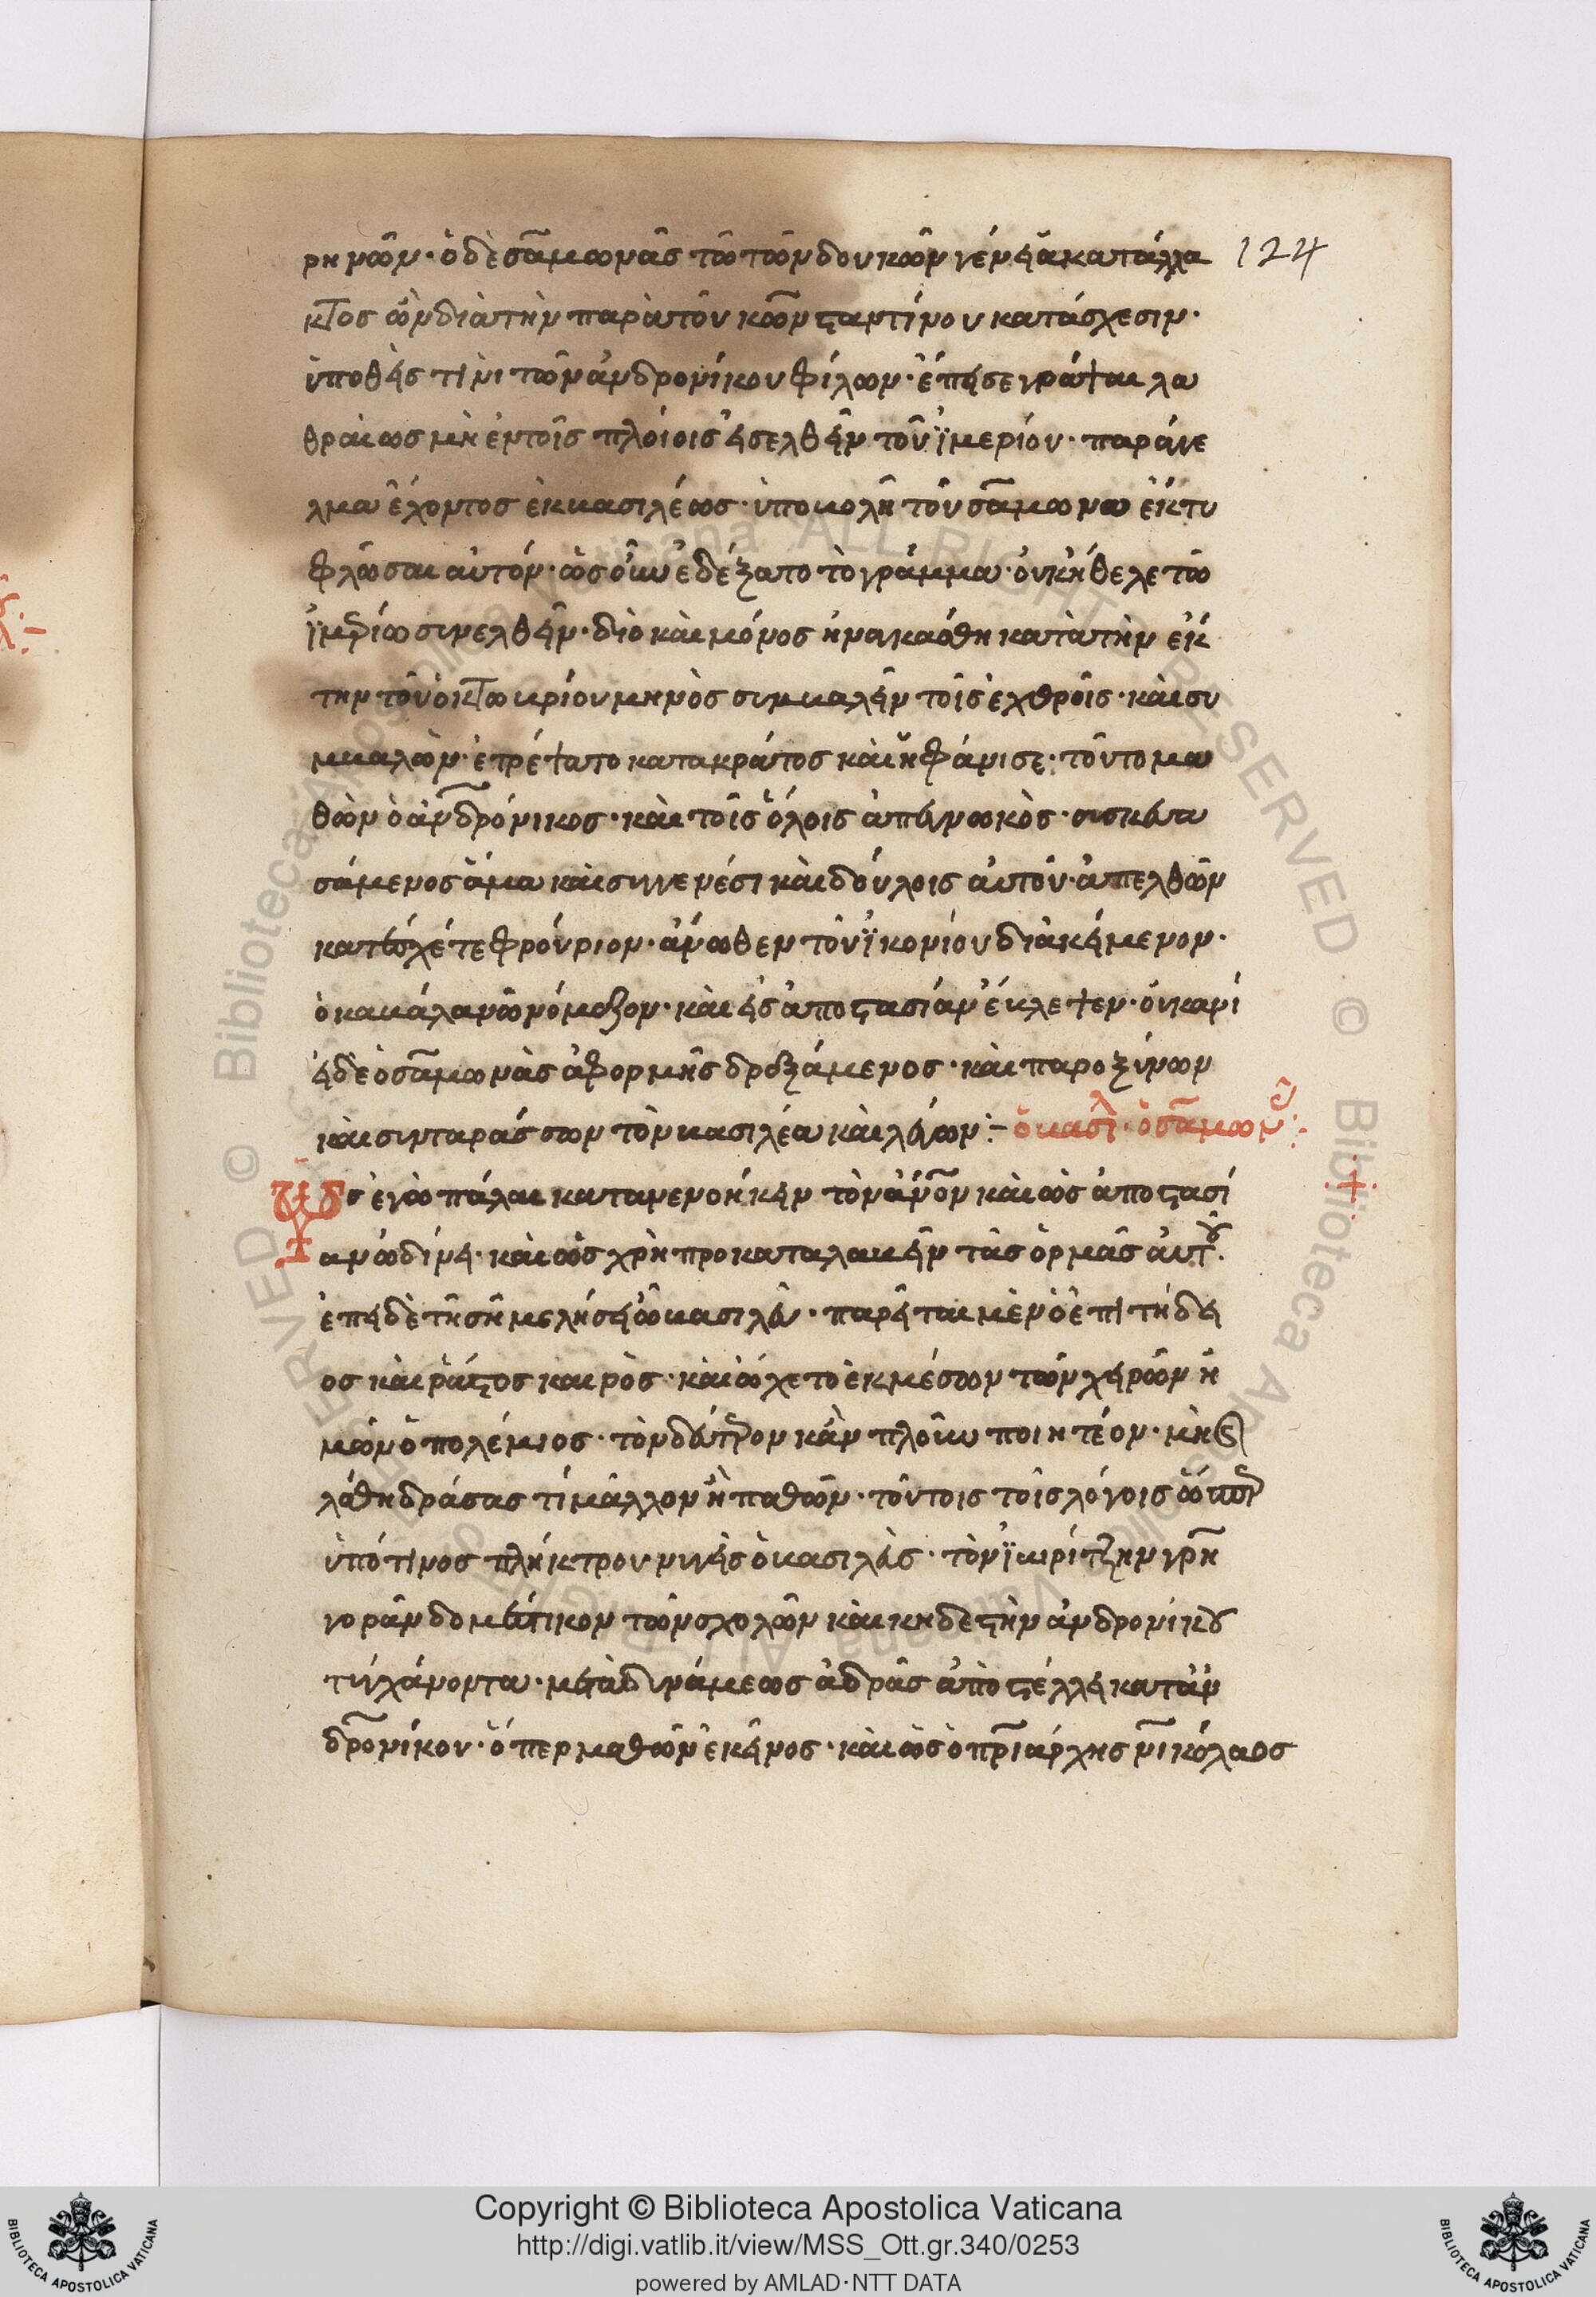 ρηνῶν· ὁ δὲ σαμωνᾶς τῶ τῶν δουκῶν γένει ἀκατάλλα 124
κτος ὢν διὰ τὴν παρὰ τοῦ κωνσταντίνου κατάσχεσιν·
ὑποθείς τινι τῶν ἀνδρονίκου φίλων· ἔπεισε γράψαι λα
θραίως μὴ ἐν τοῖς πλοίοις εἰσελθεῖν τοῦ ἱμερίου· παράγγε
λμα ἔχοντος ἐκ βασιλέως· ὑποβολῆ τοῦ σαμωνᾶ ἐκτυ
φλῶσαι αὐτόν· ὡς οὖν ἐδέξατο τὸ γράμμα· οὐκ ἤθελε τῶ
ἱμερίω συνελθεῖν· διὸ καὶ μόνος ἠναγκάσθη κατὰ τὴν ἕκ
την τοῦ ὀκτωβρίου μηνὸς συμβαλεῖν τοῖς ἐχθροῖς· καὶ συ
μβαλὼν· ἐτρέψατο κατακράτος καὶ ἠφάνισε· τοῦτο μα
θὼν ὁ ἀνδρόνικος· καὶ τοῖς ὅλοις ἀπεγνωκὼς· συσκευα
σάμενος ἅμα καὶ συγγενέσι καὶ δούλοις αὐτοῦ· ἀπελθὼν
κατέσχέ τε φρούριον· ἄνωθεν τοῦ ἰκονίου διακείμενον·
ὃ καβάλαν ὠνόμαζον· καὶ εἰς ἀποστασίαν ἔβλεψεν· οὐκ ἀνί
ει δὲ ὁ σαμωνὰς ἀφορμῆς δραξάμενος· καὶ παροξύνων
καὶ συνταράσσων τὸν βασιλέα καὶ λέγων:- ὦ βασιλ· ὁ σαμων:
ὡς ἐγὼ πάλαι κατανενοήκειν τὸν ἄνον καὶ ὡς ἀποστασί
αν ὠδίνει· καὶ ὡς χρὴ προκαταλαβεῖν τὰς ὁρμὰς αὐτοῦ·
ἐπεὶ δὲ τῆ σῆ μελήσει ὦ βασιλεῦ· παρεῖται μὲν ὁ ἐπιτήδει
ος καὶ ῥᾶστος καιρὸς· καὶ ὤχετο ἐκ μέσων τῶν χειρῶν ἡ
μῶν ὁ πολέμιος· τὸν δεύτερον κἂν πλοῦν ποιητέον· μὴ καὶ
λάθη δράσας τί μᾶλλον ἢ παθὼν· τούτοις τοῖς λόγοις ὥσπερ
ὑπό τινος πλήκτρου νυγεὶς ὁ βασιλεὺς· τὸν ἰβιρίτζην γρη
γορᾶν δομέστικον τῶν σχολῶν καὶ κηδεστὴν ἀνδρονίκου
τυγχάνοντα· μετὰ δυνάμεως ἁδρᾶς ἀποστέλλει κατὰ ἀν
δρονίκου· ὅπερ μαθὼν ἐκεῖνος· καὶ ὡς ὁ πριάρχης νικόλαος